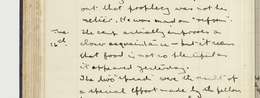 out that prophecy was not his
métier. He was mad on "reform".
Tues The camp actually improves on
closer acquaintance — but it seems
16th that food is not so plentiful as
it appeared yesterday.
The two "spreads" were the result of
a special effort made by the fellows